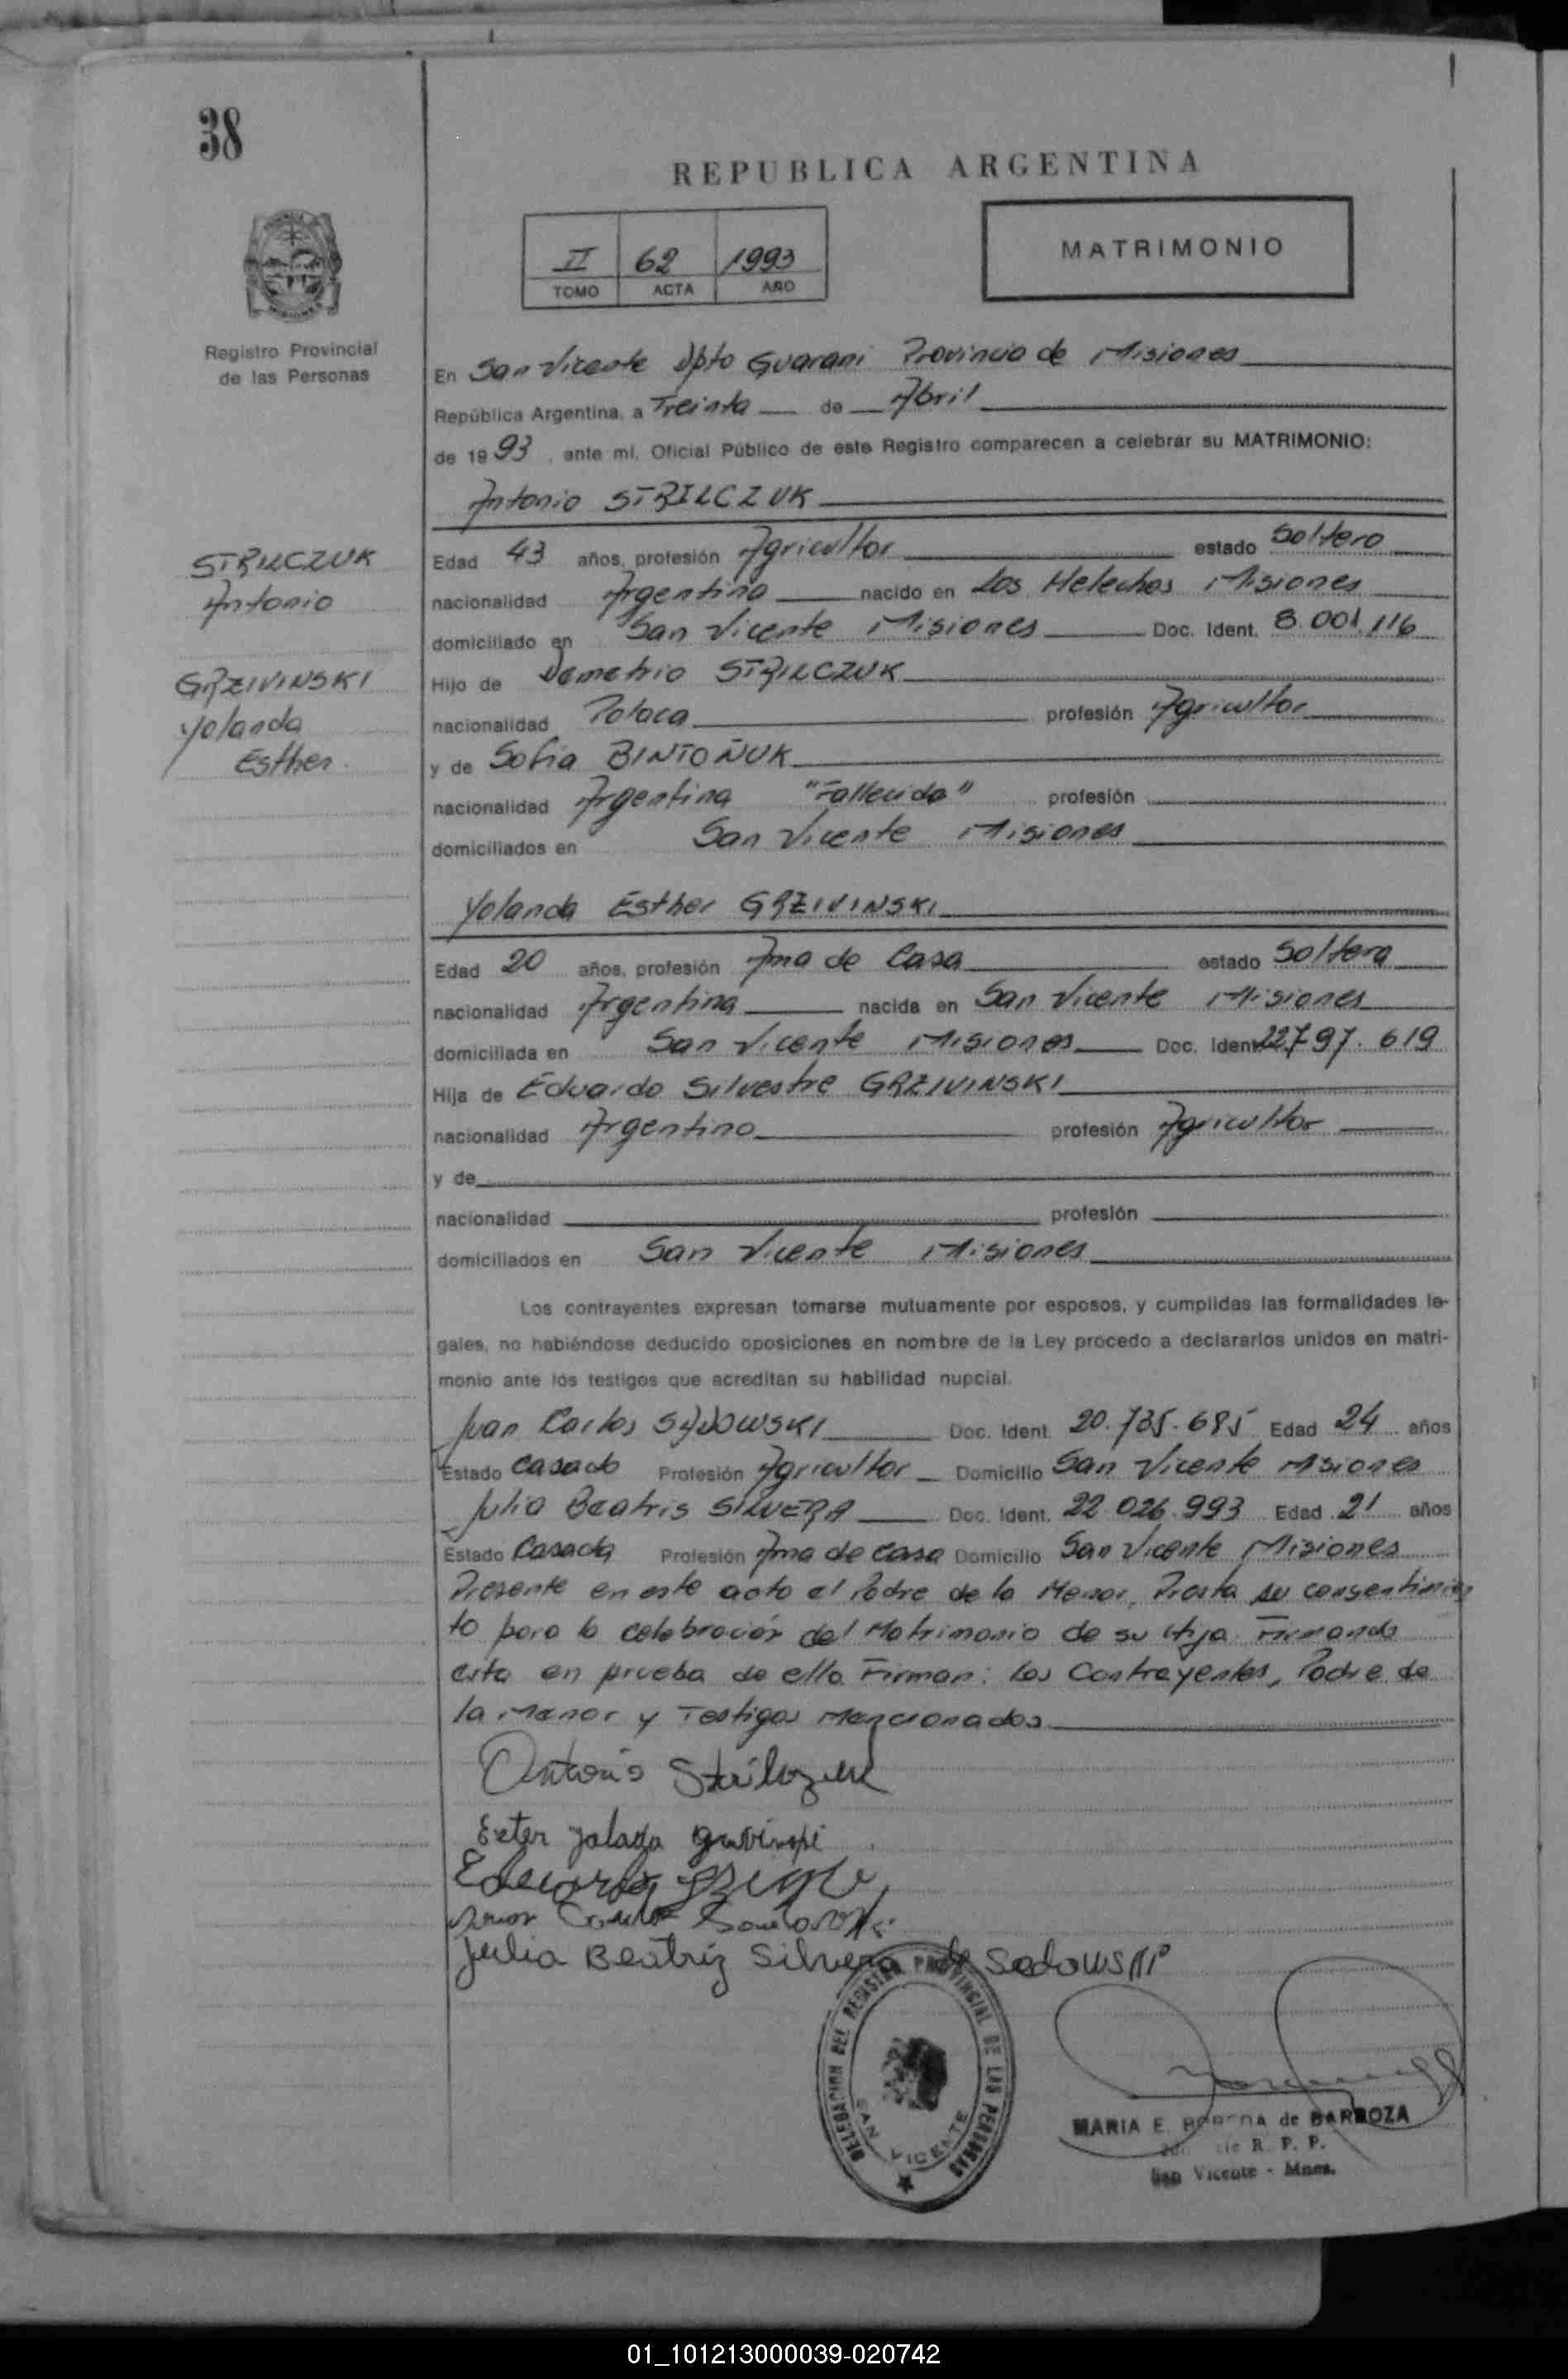 38
REPUBLICA ARGENTINA
II 62 1993
TOMO ACTA AÑO
MATRIMONIO
Registro Provincial
de las Personas
En San Vicente Dpto Guarani Provincia de Misiones
República Argentina, a Treinta de Abril
de 1993, ante mí, Oficial Público de este Registro comparecen a celebrar su MATRIMONIO:
Antonio STRILCZUK
STRILCZUK
Antonio
GRZIVINSKI
Yolanda
Esther
Edad 43 años, profesión Agricultor estado Soltero
nacionalidad Argentina nacido en Los Helechos Misiones
domiciliado en San Vicente Misiones Doc. Ident. 8.001.116
Hijo de Demetrio STRILCZUK
nacionalidad Polaca profesión Agricultor
y de Sofia BINTOÑUK
nacionalidad Argentina "Fallecida" profesión
domiciliados en San Vicente Misiones
Yolanda Esther GRZIVINSKI
Edad 20 años, profesión Ama de Casa estado Soltera
nacionalidad Argentina nacida en San Vicente Misiones
domiciliada en San Vicente Misiones Doc. Ident. 22.797.619
Hija de Eduardo Silvestre GRZIVINSKI
nacionalidad Argentino profesión Agricultor
y de
nacionalidad profesión
domiciliados en San Vicente Misiones
Los contrayentes expresan tomarse mutuamente por esposos, y cumplidas las formalidades le-
gales, no habiéndose deducido oposiciones en nombre de la Ley procedo a declararlos unidos en matri-
monio ante los testigos que acreditan su habilidad nupcial.
Juan Carlos SYDOWSKI Doc. Ident. 20.735.685 Edad 24 años
Estado Casado Profesión Agricultor Domicilio San Vicente Misiones
Julia Beatris SILVERA Doc. Ident. 22.026.993 Edad 21 años
Estado Casada Profesión Ama de casa Domicilio San Vicente Misiones
Presente en este acto el Padre de la Menor, Presta su consentimien
to para la celebración del Matrimonio de su Hija Firmando
esta en prueba de ello Firman: Los Contrayentes, Padre de
la Menor y Testigos Mencionados
Antonio Strilczuk
Ester Yolada
Eduardo
Juan Carlos
Julia Beatriz Silvera de Sedowski
DELEGACION DEL REGISTRO PROVINCIAL DE LAS PERSONAS
SAN VICENTE
MARIA E. de BARBOZA
R. P. P.
San Vicente - Mnes.
01_101213000039-020742